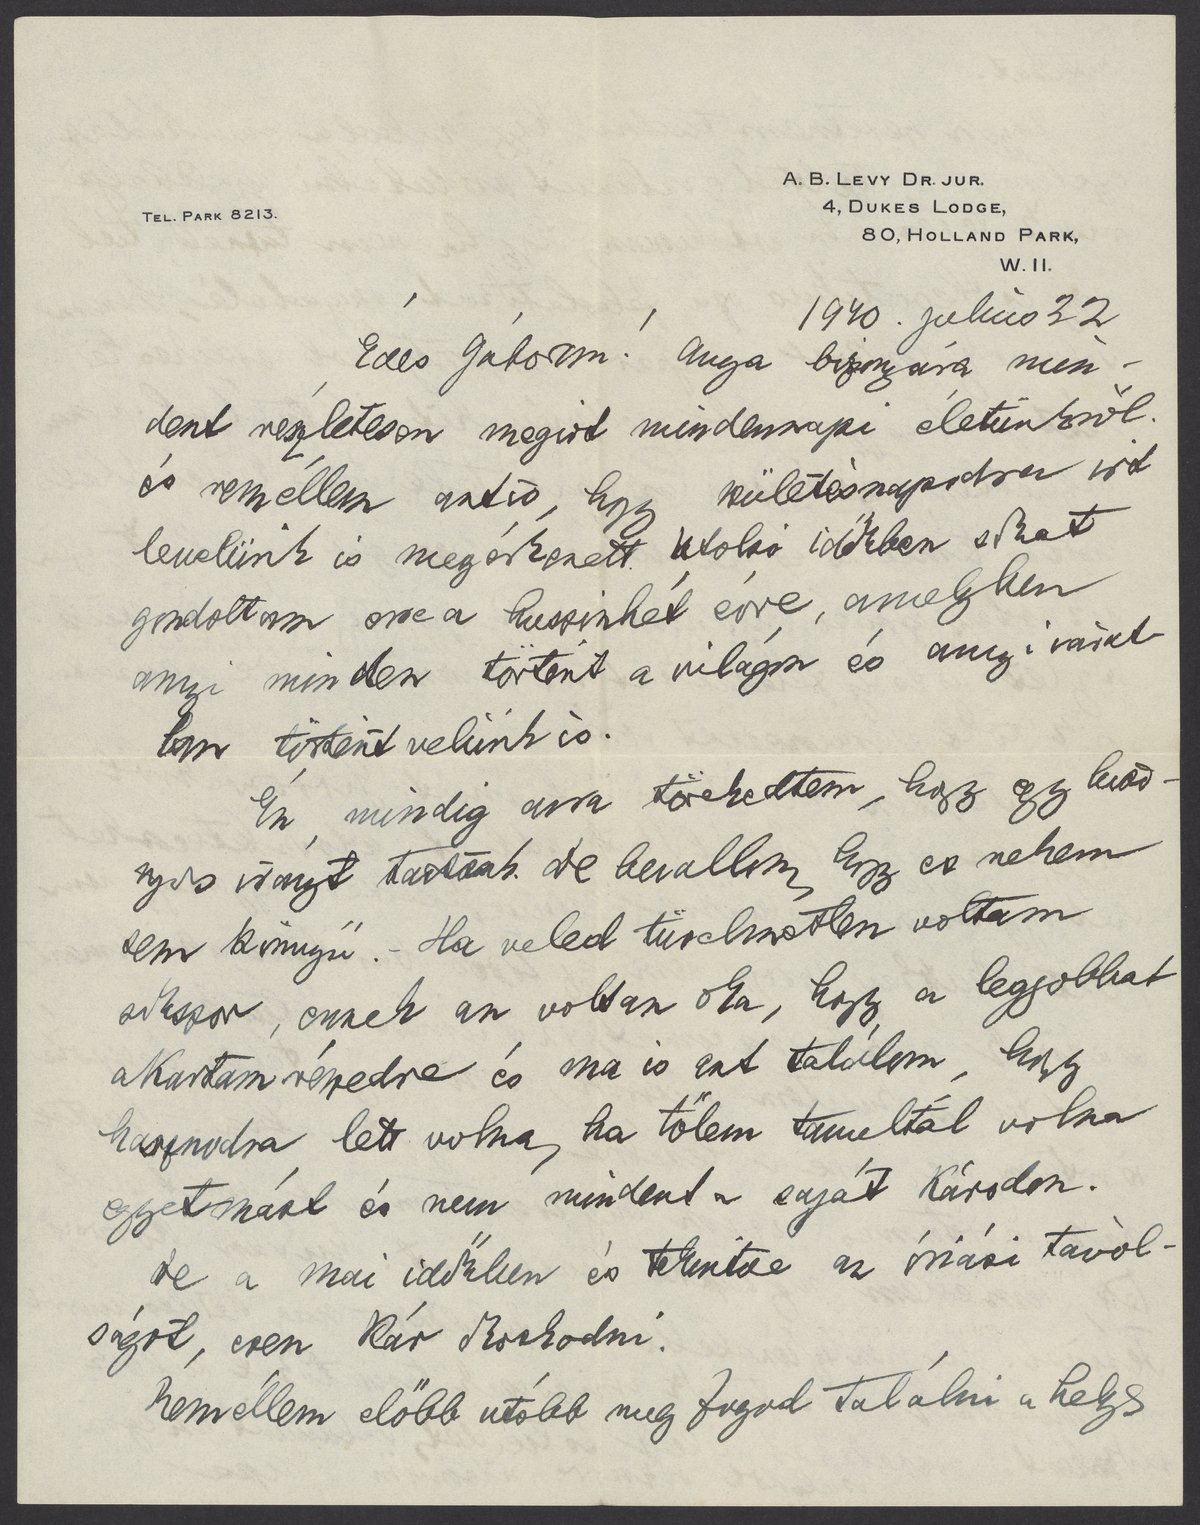 A. B. LEVY DR. JUR.
TEL. PARK 8213.
4, DUKES LODGE,
80, HOLLAND PARK,
W. 11.
1940. julius 22
Édes Gáborom! Anya bizonyára min-
dent részletesen megirt mindennapi életünkről.
és reméllem azt is, hogy születésnapodra irt
levelünk is megérkezett. Utolsó időkben sokat
gondoltam erre a huszonhét évre, amelyben
anyi minden történt a világon és anyi várat-
lan történt velünk is.
Én mindig arra törekedtem, hogy egy bizo-
nyos irányt tartsak. de bevallom, hogy ez nekem
sem könnyü. - Ha veled türelmetlen voltam
sokszor, ennek az volt az oka, hogy a legjobbat
akartam részedre és ma is azt találom, hogy
hasznodra lett volna, ha tőlem tanultál volna
egyetmást és nem mindent a saját károdon.
de a mai időkben és tekintve az óriási távol-
ságot, ezen kár okoskodni.
Reméllem előbb utóbb meg fogod találni a helyes